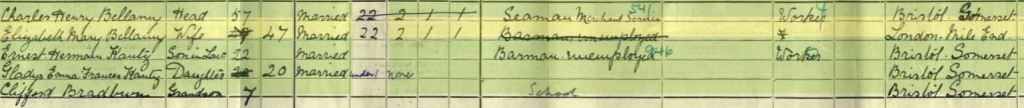 Charles Henry Bellamy Head 57 Married 22 2 1 1 Seaman Merchant Service 541 Worker Bristol Somerset
Elizabeth Mary Bellamy Wife 47 Married 22 2 1 1 Barman unemployed London Mile End
Ernest Herman Hautz Son in Law 22 Married Barman unemployed 946 Worker Bristol Somerset
Gladys Emma Frances Hautz Daughter 20 Married under 1 none Bristol Somerset
Clifford Bradburn Grandson 7 School Bristol Somerset